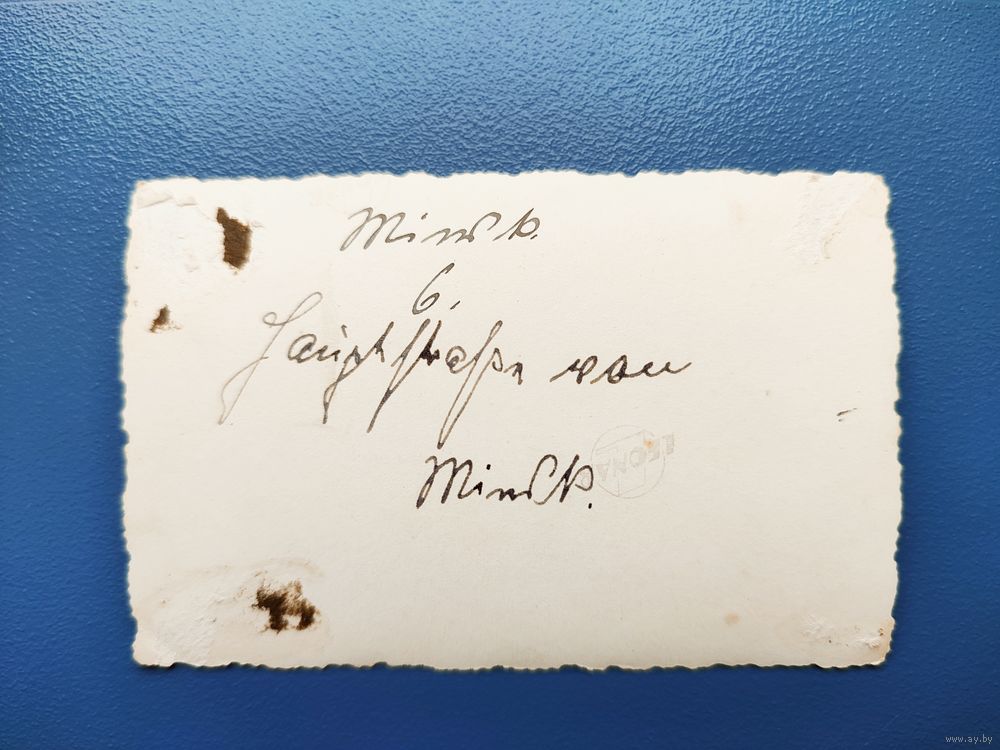 Minsk.
6.
Hauptstraße von
Minsk.
LEONAR
www.ay.by